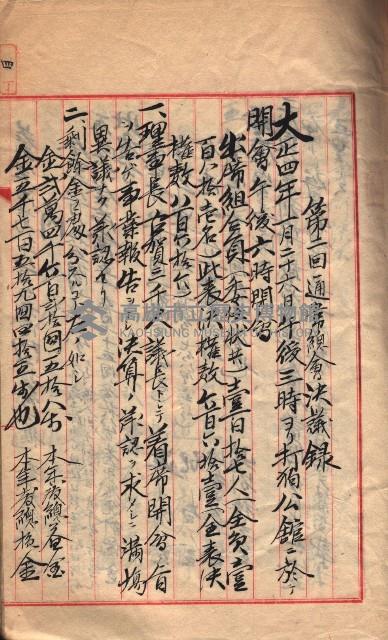 四
第二回通常總會決議錄
大正四年一月二十六日午後三時ヨリ打狗公館ニ於テ
開會午後六時閉會
出席組合員(委任狀共)壹百拾七人(全員壹
百八拾壱名)此表決權數 百六拾壹(全表決
權數八百六拾 )
一、理事長古賀三千人議長トシテ着席開會ノ旨
ヲ告ゲ事業報告ヲ 決算ノ承認ヲ求メシニ滿場
異議ナク承認セリ
二、剩餘金ヲ處分スルコト 如シ
金貳萬四千 百 拾 圓五拾八 本年度 金
金五千七百五拾九圓四拾五 也 本年度 金
高雄市立歷史博物館
KAOHSIUNG MUSEUM OF HISTORY